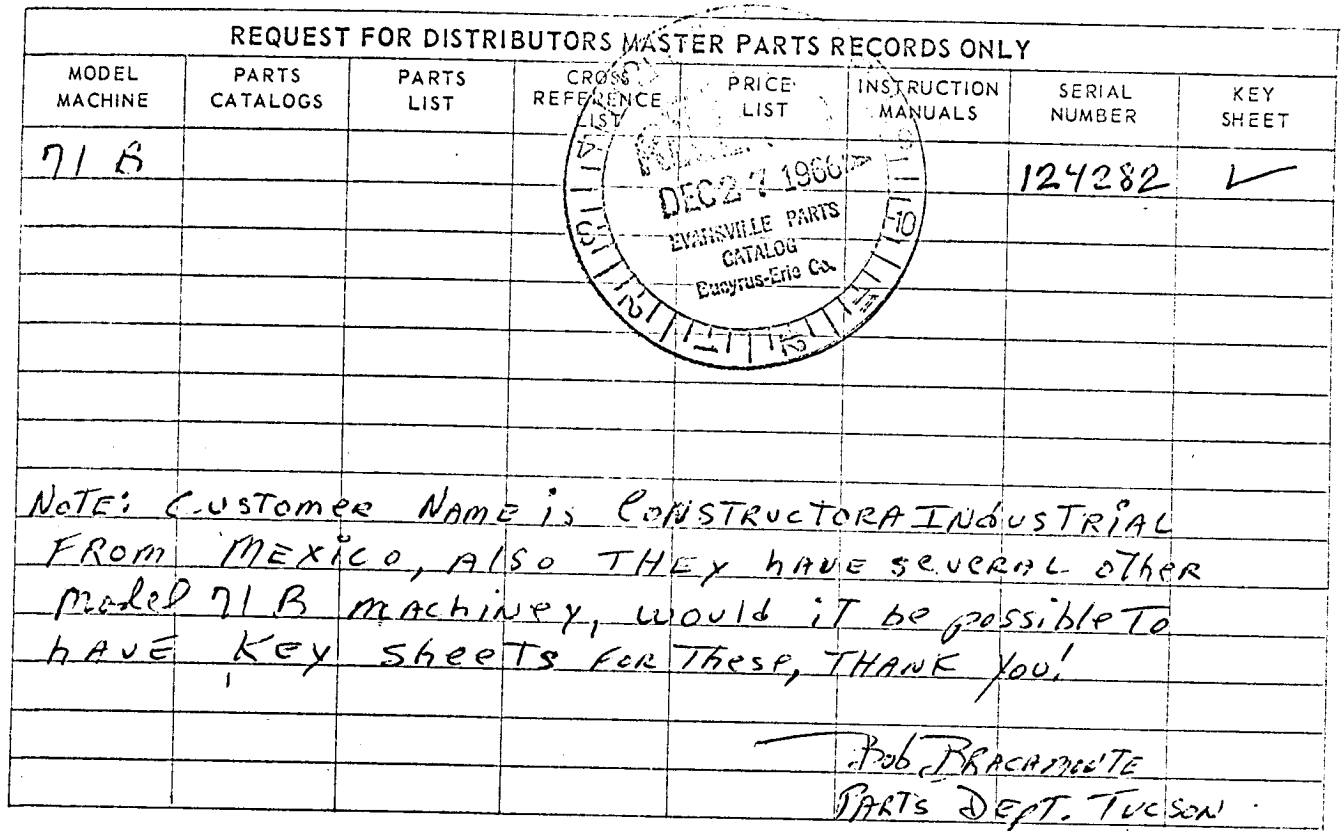 REQUEST FOR DISTRIBUTORS MASTER PARTS RECORDS ONLY
MODEL MACHINE PARTS CATALOGS PARTS LIST CROSS REFERENCE LIST PRICE LIST INSTRUCTION MANUALS SERIAL NUMBER KEY SHEET
71 B 124282 ✓
DEC 27 1966
EVANSVILLE PARTS
CATALOG
Bucyrus-Erie Co.
NOTE: CUSTOMER NAME is CONSTRUCTORA INDUSTRIAL
FROM MEXICO, Also THEY hAVE SEVERAL OTHER
Model 71 B MAChiNey, would iT be possible To
hAVE Key SheeTs FOR These, THANK You!
Bob BRACAMONTE
PARTS DEPT. TUCSON